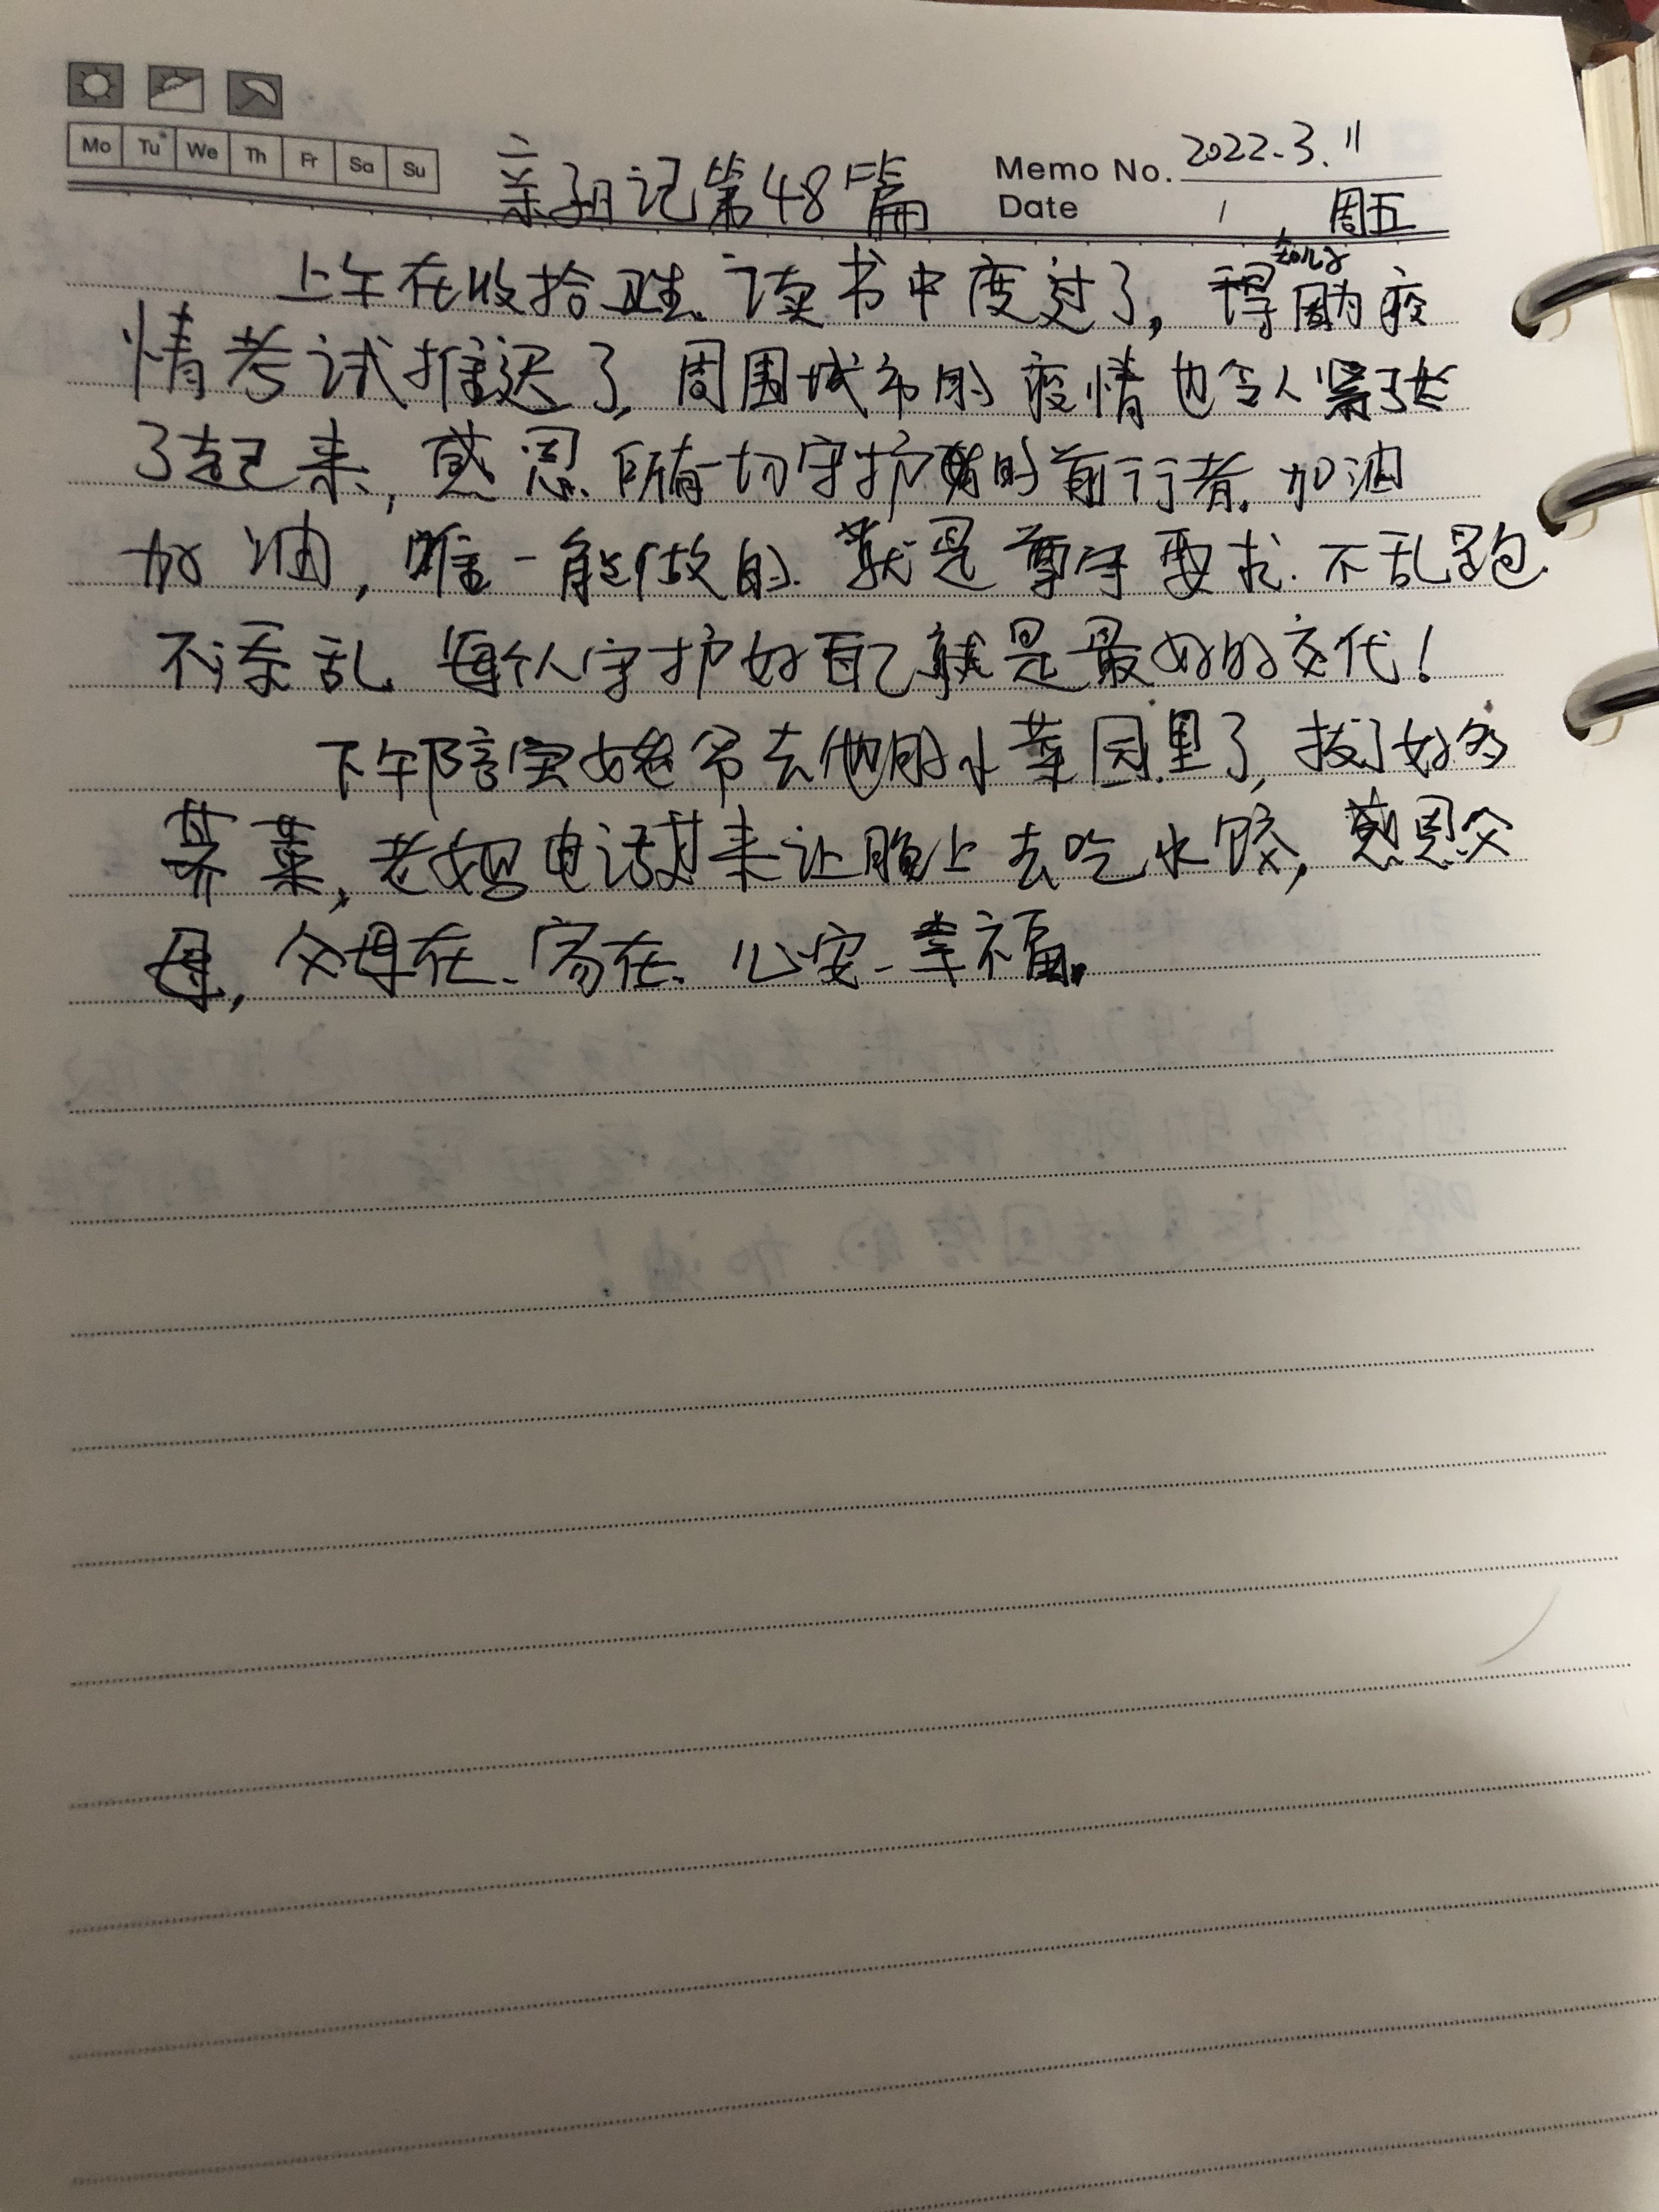 Mo Tu We Th Fr Sa Su
亲子日记第48篇
Memo No. 2022.3.11
Date / 周五
上午在收拾卫生、读书中度过了,得知因为疫
情考试推迟了,周围城市的疫情也令人紧张
了起来,感恩所有一切守护的前行者,加油
加油,唯一能做的.就是尊守要求.不乱跑
不添乱 每个人守护好自己就是最好的交代!
下午陪宝妈爸爷去他的小菜园里了,拔了好多
荠菜,老妈电话打来让晚上去吃水饺,感恩父
母,父母在、家在、心安、幸福。